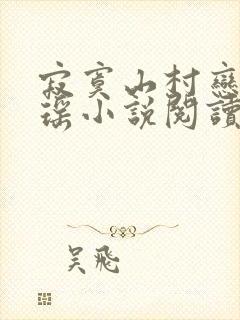 寂寞山村戀
瑤小說閱讀
吴飛